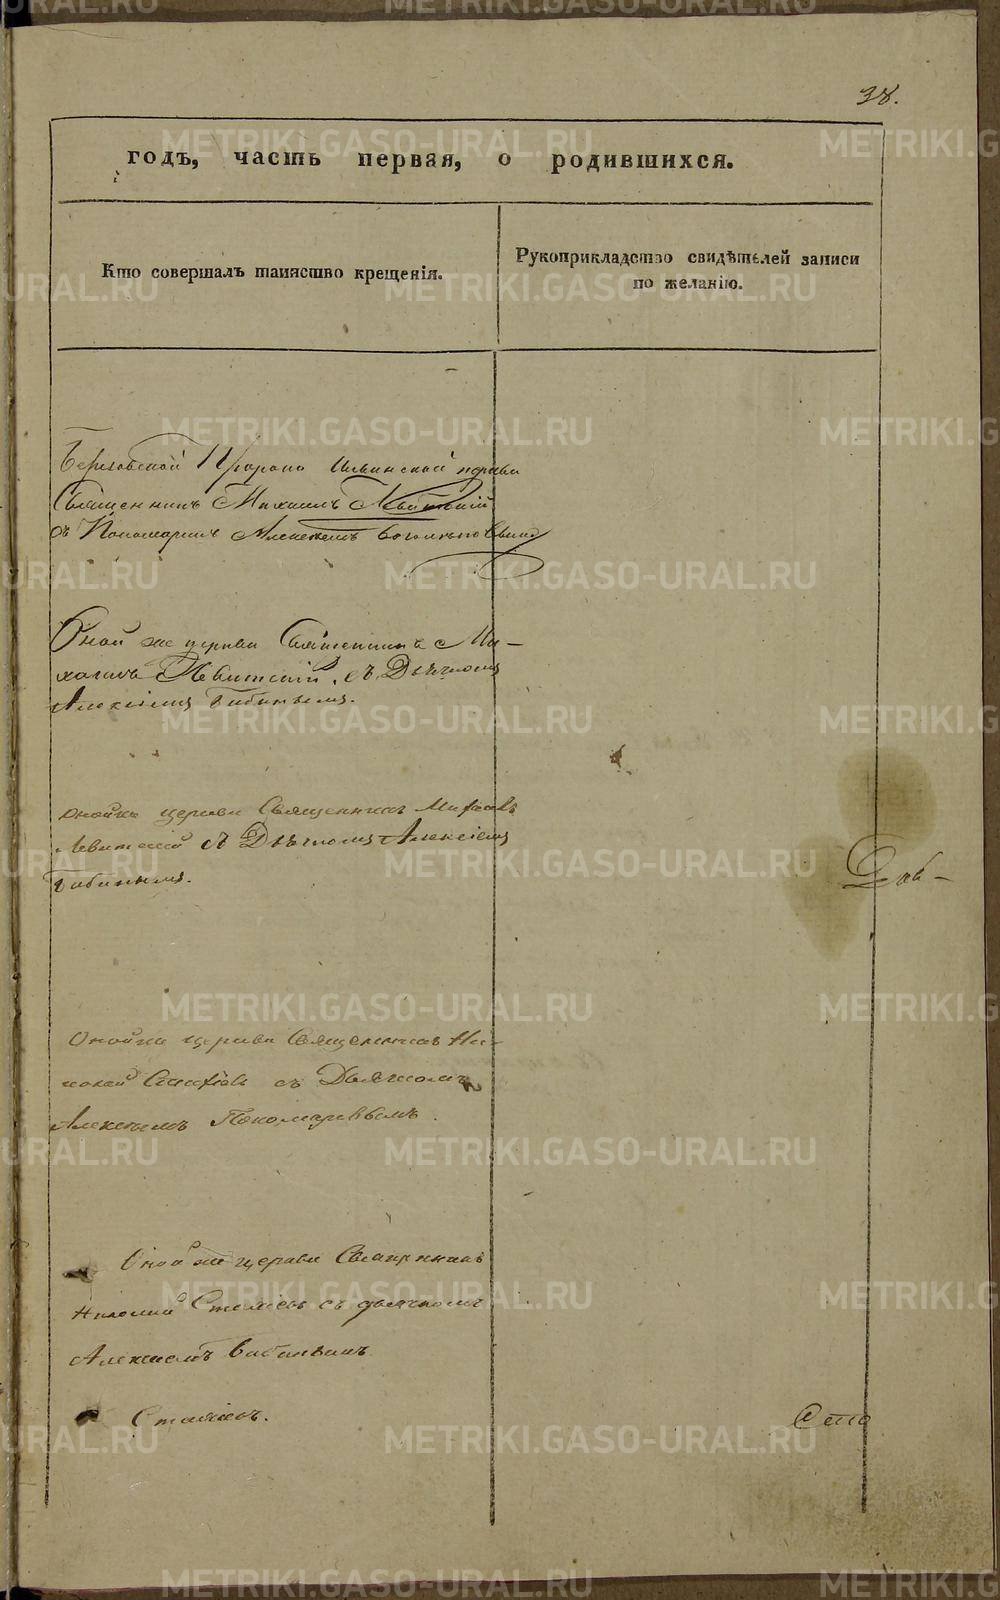 38.
годъ, часть первая, о родившихся.
Кто совершалъ таинство крещенія.
Рукоприкладство свидѣтелей записи
по желанію.
Пророко Ильинской церкви
Священникъ Михаилъ Левитскій
съ Пономаремъ Алексѣемъ
Оной же церкви Священникъ Ми-
хаилъ Левитскій, съ Дьячкомъ
Алексіемъ Бабинымъ.
онойже церкви Священникъ Михаилъ
Левитскій съ Дьячкомъ Алексіемъ
Бабинымъ.
Онойже церкви Священникъ Ни-
колай съ Дьячкомъ
Алексѣемъ Пономаревымъ.
Оной же церкви Священникъ
Николай съ дьячкомъ
Алексіемъ Бабинымъ
METRIKI.GASO-URAL.RU